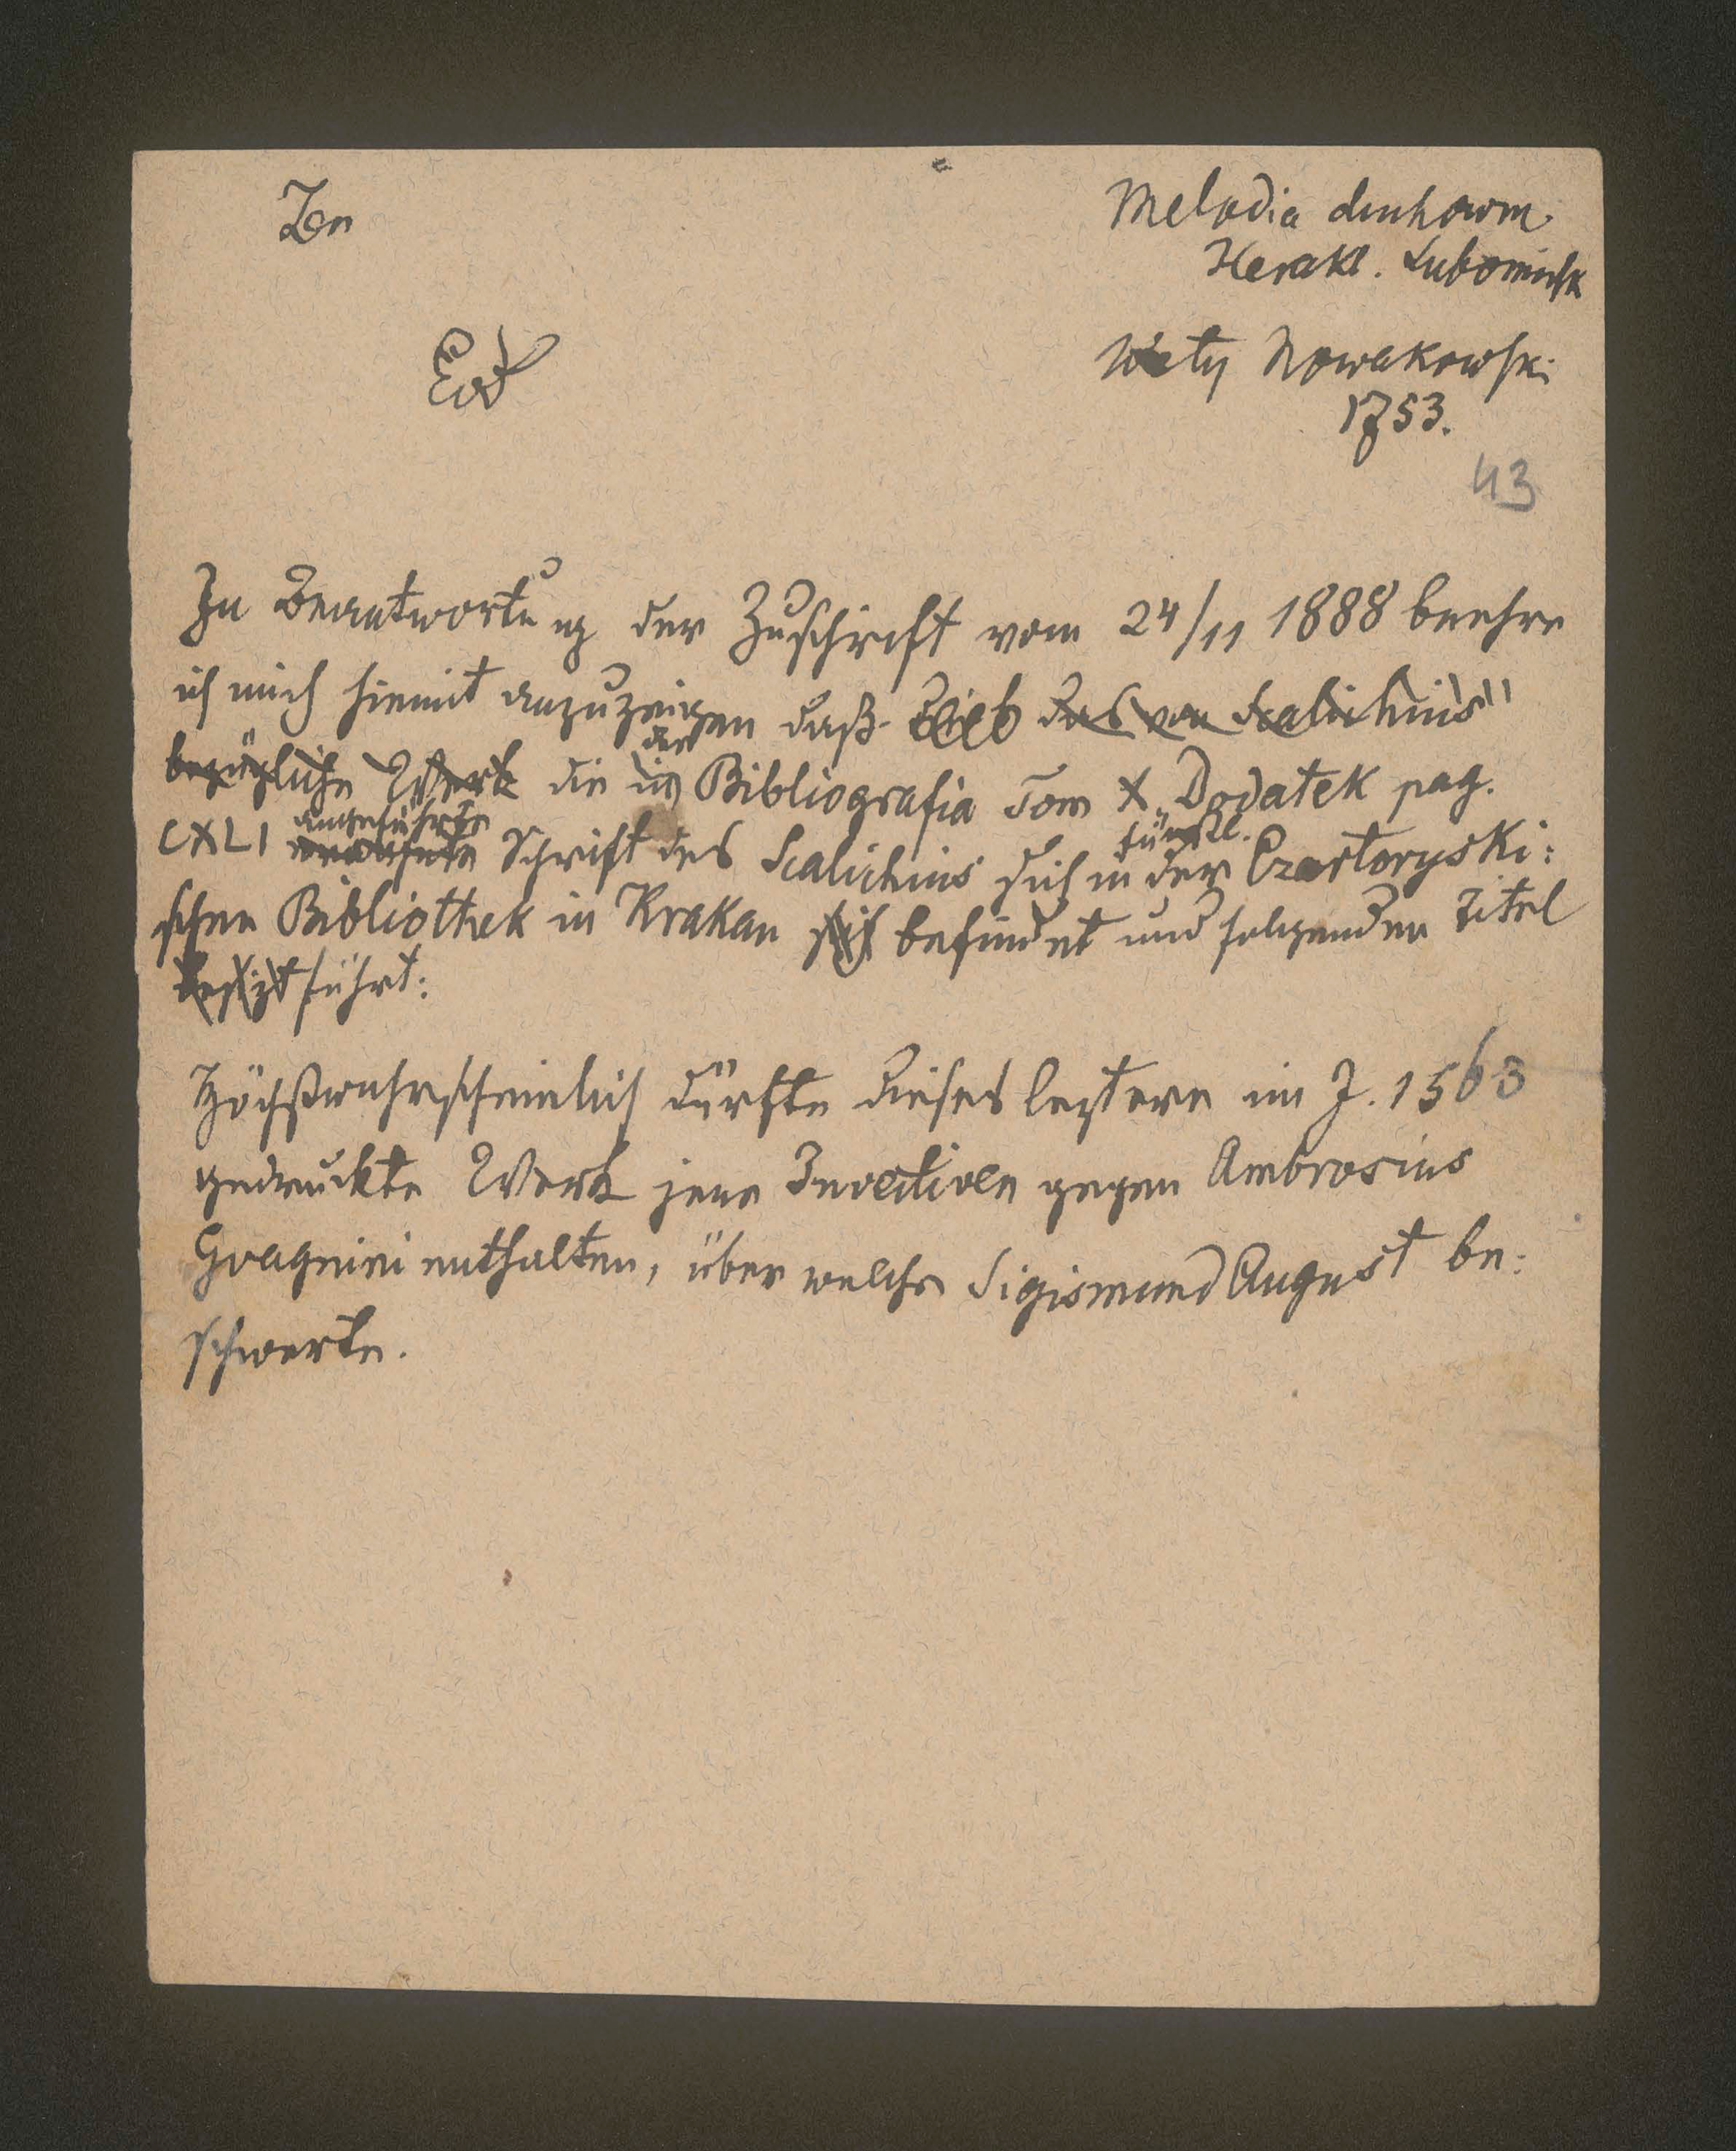 Zen
Melodia duchown
Herakl. Lubomirsk
Ew
Nowakowski
1753.
43
In Beantwortung der Zuschrift vom 24/11 1888 beehre
ich mich hiemit anzuzeigen daß das von Scalichius"
bezügliche Werk die in der Bibliografia Tom X „Dodatek pag.
CXLI angeführte Schrift des Scalichius sich in der fürstl. Czartoryski:
schen Bibliothek in Krakau sich befindet und folgenden Titel
besizt führt:
Höchstwahrscheinlich dürfte dieses leztere im J. 1563
gedruckte Werk jene Invectiven gegen Ambrosius
Gvagnini enthalten, über welche Sigismund August be:
schwerte.